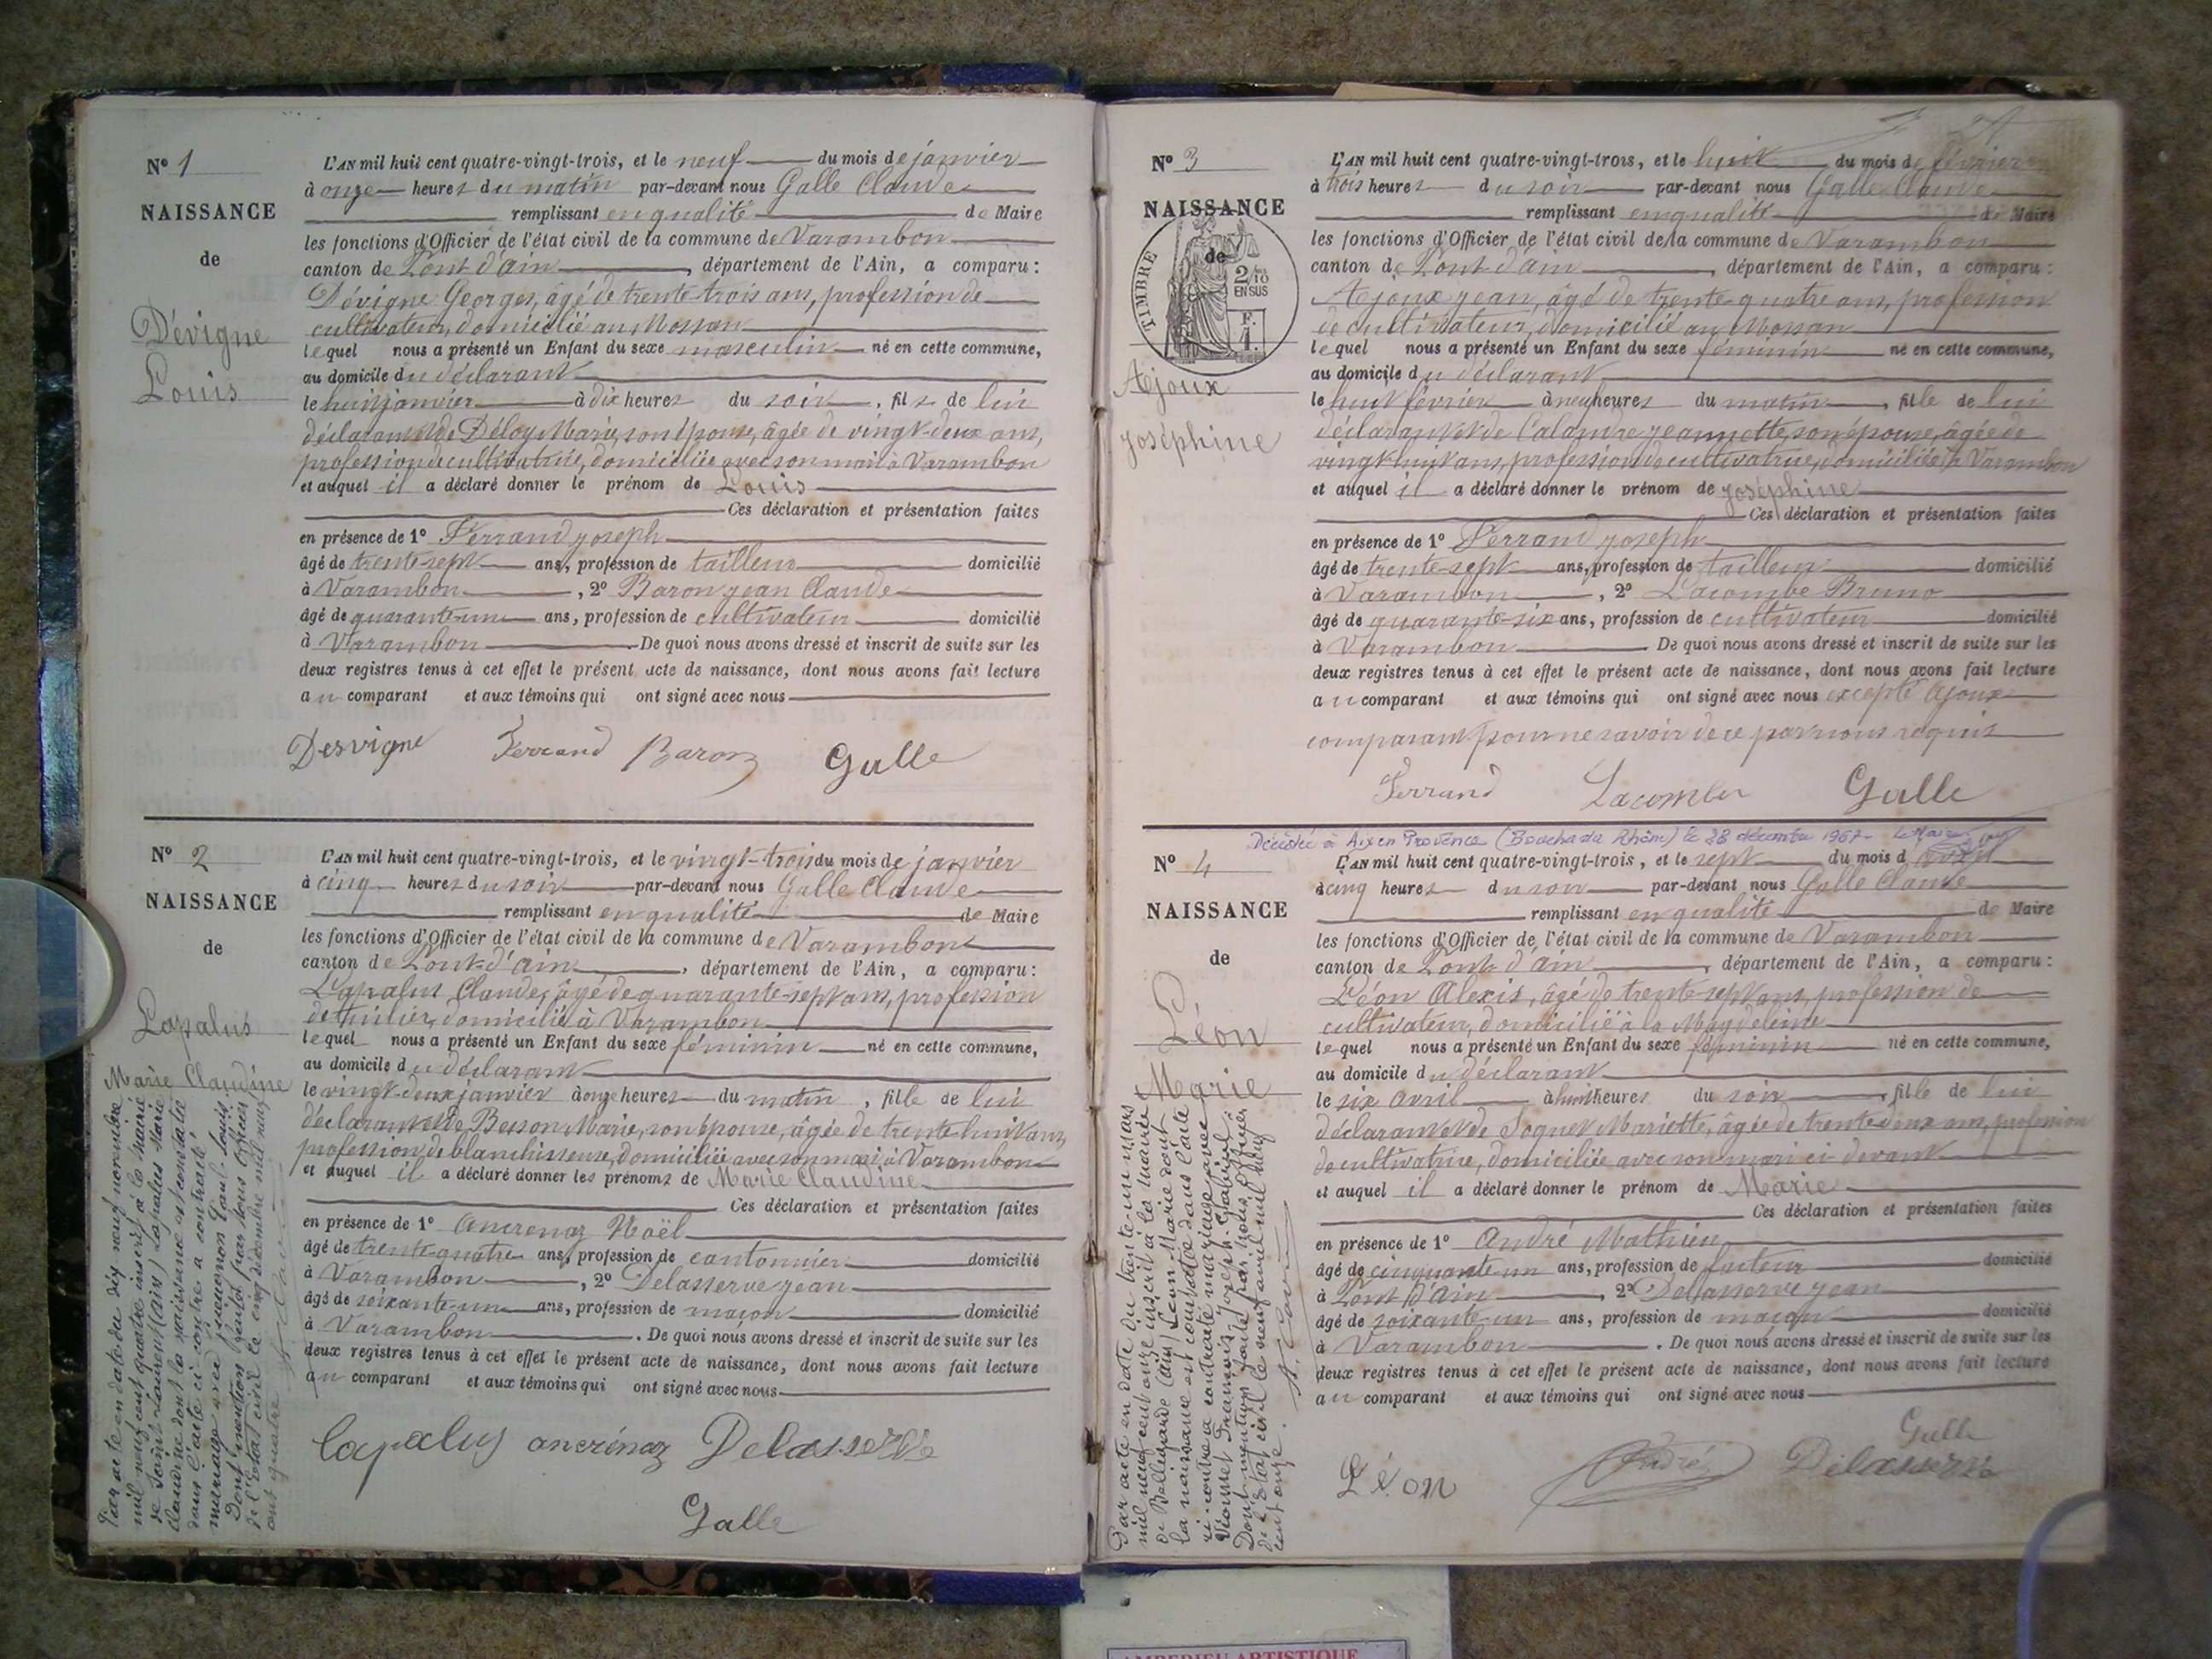 N° 1
NAISSANCE
de
Dévigne
Louis
L'AN mil huit cent quatre-vingt-trois, et le neuf du mois de janvier
à onze heures du matin par-devant nous Galle Claude
remplissant en qualité de Maire
les fonctions d'Officier de l'état civil de la commune de Varambon
canton de Pont d'Ain, département de l'Ain, a comparu :
Dévigne Georges, âgé de trente-trois ans, profession de
cultivateur, domicilié au Mossan
lequel nous a présenté un Enfant du sexe masculin né en cette commune,
au domicile du déclarant
le huit janvier à dix heures du soir, fils de lui
déclarant et de Déloy Marie, son épouse, âgée de vingt-deux ans,
profession de cultivatrice, domiciliée avec son mari à Varambon
et auquel il a déclaré donner le prénom de Louis
Ces déclaration et présentation faites
en présence de 1° Ferrand joseph
âgé de trente-sept ans, profession de tailleur domicilié
à Varambon, 2° Baron jean Claude
âgé de quarante-un ans, profession de cultivateur domicilié
à Varambon De quoi nous avons dressé et inscrit de suite sur les
deux registres tenus à cet effet le présent acte de naissance, dont nous avons fait lecture
au comparant et aux témoins qui ont signé avec nous
Desvigne Ferrand Baron Galle
N° 2
NAISSANCE
de
Lapalus
Marie Claudine
L'AN mil huit cent quatre-vingt-trois, et le vingt-trois du mois de janvier
à cinq heures du soir par-devant nous Galle Claude
remplissant en qualité de Maire
les fonctions d'Officier de l'état civil de la commune de Varambon
canton de Pont-d'Ain, département de l'Ain, a comparu :
Lapalus Claude, âgé de quarante-sept ans, profession
de tuilier, domicilié à Varambon
lequel nous a présenté un Enfant du sexe féminin né en cette commune,
au domicile du déclarant
le vingt-deux janvier à onze heures du matin, fille de lui
déclarant et de Besson Marie, son épouse, âgée de trente-huit ans,
profession de blanchisseuse, domiciliée avec son mari à Varambon
et auquel il a déclaré donner les prénoms de Marie Claudine
Ces déclaration et présentation faites
en présence de 1° Ancrenaz Noël
âgé de trente-quatre ans, profession de cantonnier domicilié
à Varambon, 2° Delasserve jean
âgé de soixante-un ans, profession de maçon domicilié
à Varambon. De quoi nous avons dressé et inscrit de suite sur les
deux registres tenus à cet effet le présent acte de naissance, dont nous avons fait lecture
au comparant et aux témoins qui ont signé avec nous
Par acte en date du dix neuf novembre
mil neuf cent quatre inséré à la mairie
de Saint-Laurent (Ain) Lapalus Marie
Claudine dont la naissance est constatée
dans l'acte ci contre a contracté
mariage avec Paul Louis
Dont mention faite par Nous Officier
de l'Etat civil le cinq décembre mil neuf
cent quatre
lapalus ancrénaz Delasserve
Galle
N° 3
NAISSANCE
de
TIMBRE
2/10
EN SUS
F.
1.
Ajoux
joséphine
L'AN mil huit cent quatre-vingt-trois, et le huit du mois de février
à trois heures du soir par-devant nous Galle Claude
remplissant en qualité de Maire
les fonctions d'Officier de l'état civil de la commune de Varambon
canton de Pont d'Ain, département de l'Ain, a comparu :
Ajoux jean, âgé de trente-quatre ans, profession
de cultivateur, domicilié au Mossan
lequel nous a présenté un Enfant du sexe féminin né en cette commune,
au domicile du déclarant
le huit février à neuf heures du matin, fille de lui
déclarant et de Calandre jeannette, son épouse, âgée de
vingt-huit ans, profession de cultivatrice, domiciliée à Varambon
et auquel il a déclaré donner le prénom de joséphine
Ces déclaration et présentation faites
en présence de 1° Ferrand joseph
âgé de trente-sept ans, profession de tailleur domicilié
à Varambon, 2° Lacombe Bruno
âgé de quarante-six ans, profession de cultivateur domicilié
à Varambon. De quoi nous avons dressé et inscrit de suite sur les
deux registres tenus à cet effet le présent acte de naissance, dont nous avons fait lecture
au comparant et aux témoins qui ont signé avec nous excepté Ajoux
comparant pour ne savoir de ce par nous requis
Ferrand Lacombe Galle
Décédée à Aix en Provence (Bouches du Rhône) le 28 décembre 1967 Le Maire
N° 4
NAISSANCE
de
Léon
Marie
L'AN mil huit cent quatre-vingt-trois, et le sept du mois d'avril
à cinq heures du soir par-devant nous Galle Claude
remplissant en qualité de Maire
les fonctions d'Officier de l'état civil de la commune de Varambon
canton de Pont d'Ain, département de l'Ain, a comparu :
Léon Alexis, âgé de trente-sept ans, profession de
cultivateur, domicilié à la Magdeleine
lequel nous a présenté un Enfant du sexe féminin né en cette commune,
au domicile du déclarant
le six avril à huit heures du soir, fille de lui
déclarant et de Soquet Mariette, âgée de trente-deux ans, profession
de cultivatrice, domiciliée avec son mari ci-devant
et auquel il a déclaré donner le prénom de Marie
Ces déclaration et présentation faites
en présence de 1° André Mathieu
âgé de cinquante-un ans, profession de facteur domicilié
à Pont d'Ain, 2° Delasserve jean
âgé de soixante-un ans, profession de maçon domicilié
à Varambon. De quoi nous avons dressé et inscrit de suite sur les
deux registres tenus à cet effet le présent acte de naissance, dont nous avons fait lecture
au comparant et aux témoins qui ont signé avec nous
Par acte en date du trente-un mars
mil neuf cent onze inscrit à la mairie
de Bellegarde (Ain) Léon Marie dont
la naissance est constatée dans l'acte
ci-contre a contracté mariage avec
François Joseph
Dont mention faite par nous Officier
de l'Etat civil le neuf avril mil neuf
cent onze.
Galle
Léon André Delasserve
AMBERIEU ARTISTIQUE